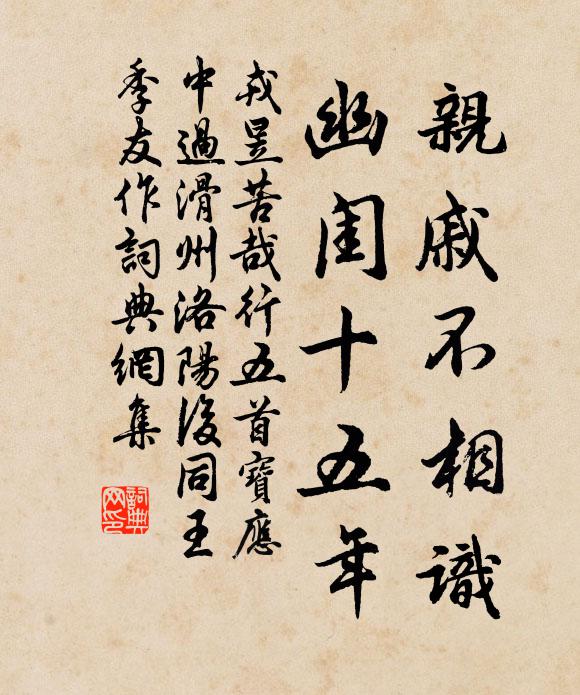 親戚不相識
幽閨十五年
戎昱苦哉行五首寶應
中過滑州洛陽後同王
季友作詞典網集
詞典网印